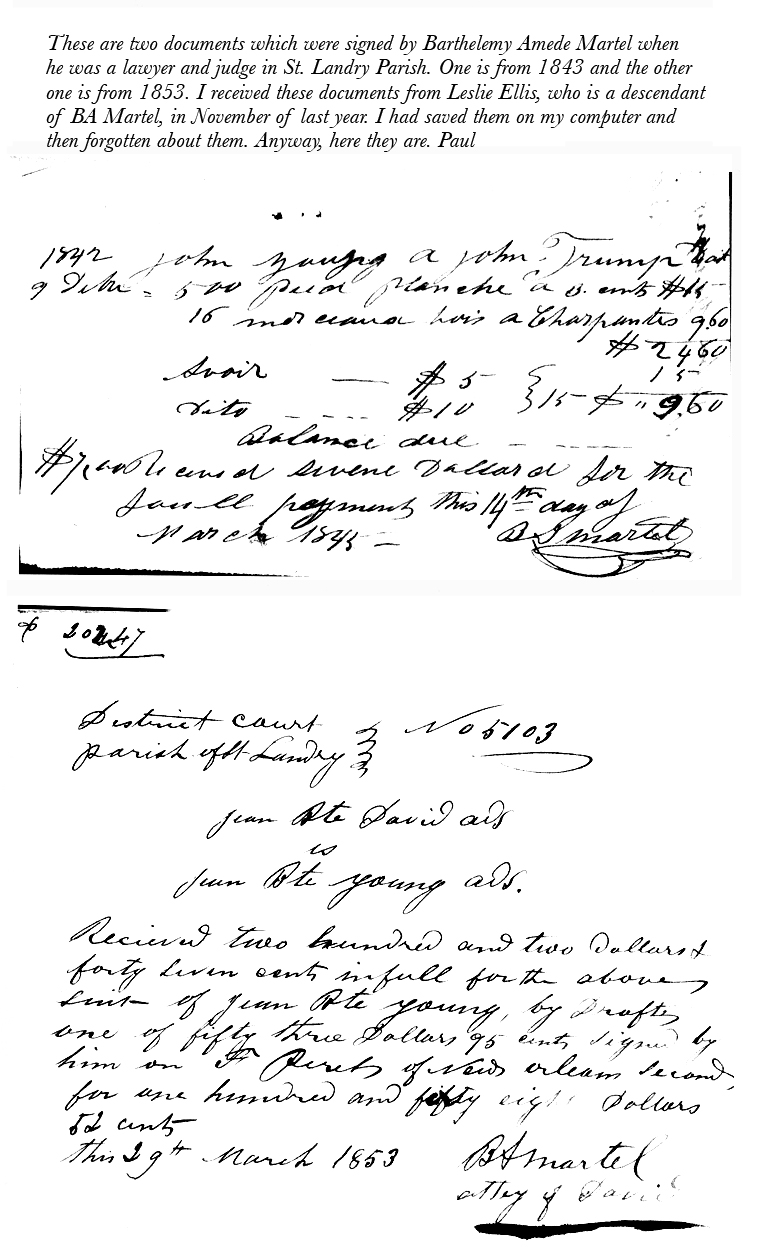 These are two documents which were signed by Barthelemy Amede Martel when
he was a lawyer and judge in St. Landry Parish. One is from 1843 and the other
one is from 1853. I received these documents from Leslie Ellis, who is a descendant
of BA Martel, in November of last year. I had saved them on my computer and
then forgotten about them. Anyway, here they are. Paul
1842 John young a john Trump
500 pied planche a cents $15
16 morceaux bois a Charpantes 9.60
$ 24 60
Avoir — $ 5 15
Dito $10 } 15 $ " 9.60
Balance due
$7,00 Received sevene Dollard for the
foull payment this 14th day of
March 184 — B A Martel
$ 202.47
District court
parish of St Landry } No 5103
jean Bte David ads
vs
jean Bte young ads.
Recieved two hundred and two Dollars &
forty seven cents in full for the above
suit of jean Bte young, by Drafts
one of fifty three Dollars 95 cents signed by
him on F of New orleans second,
for one hundred and fifty eight Dollars
52 cents
this 29th March 1853 BA Martel
attey of David